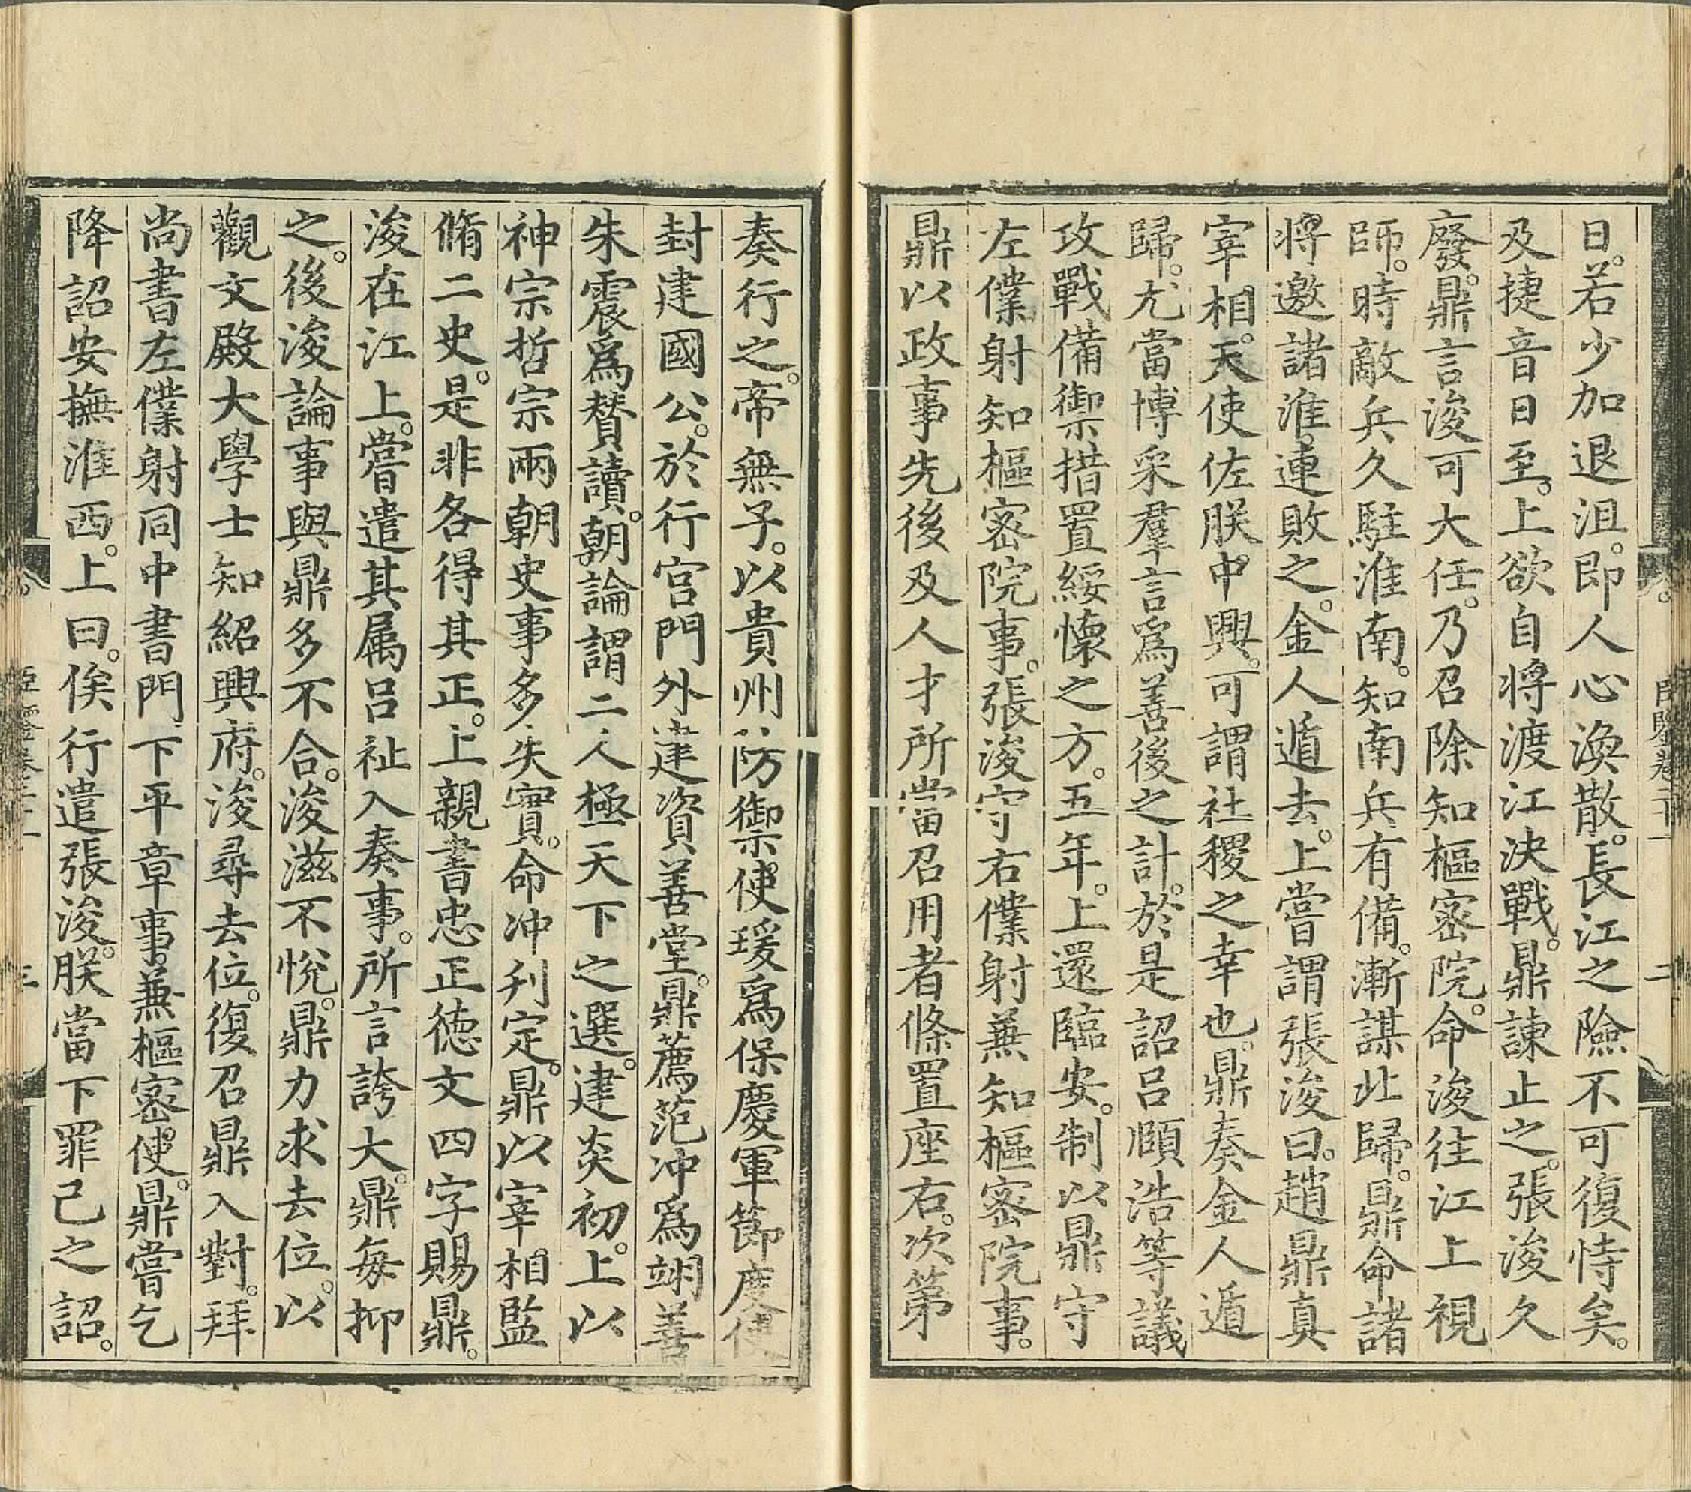 日。若少加退沮。即人心渙散。長江之險不可復恃矣。
及捷音日至。上欲自將渡江決戰。鼎諫止之。張浚久
廢。鼎言浚可大任。乃召除知樞密院。命浚往江上視
師。時敵兵久駐淮南。知南兵有備。漸謀北歸。鼎命諸
將邀諸淮。連敗之。金人遁去。上嘗謂張浚曰。趙鼎真
宰相。天使佐朕中興。可謂社稷之幸也。鼎奏金人遁
歸。尤當博采羣言爲善後之計。於是詔呂頤浩等議
攻戰備御措置綏懷之方。五年。上還臨安。制以鼎守
左僕射知樞密院事。張浚守右僕射兼知樞密院事。
鼎以政事先後及人才所當召用者條置座右。次第
奏行之。帝無子。以貴州防御使瑗爲保慶軍節度使
封建國公。於行宮門外建資善堂。鼎薦范冲爲翊善
朱震爲贊讀。朝論謂二人極天下之選。建炎初。上以
神宗哲宗兩朝史事多失實。命冲刋定。鼎以宰相監
脩二史。是非各得其正。上親書忠正德文四字賜鼎。
浚在江上。嘗遣其属呂祉入奏事。所言誇大。鼎每抑
之。後浚論事與鼎多不合。浚滋不悅。鼎力求去位。以
觀文殿大學士知紹興府。浚尋去位。復召鼎入對。拜
尚書左僕射同中書門下平章事兼樞密使。鼎嘗乞
降詔安撫淮西。上曰。俟行遣張浚。朕當下罪己之詔。